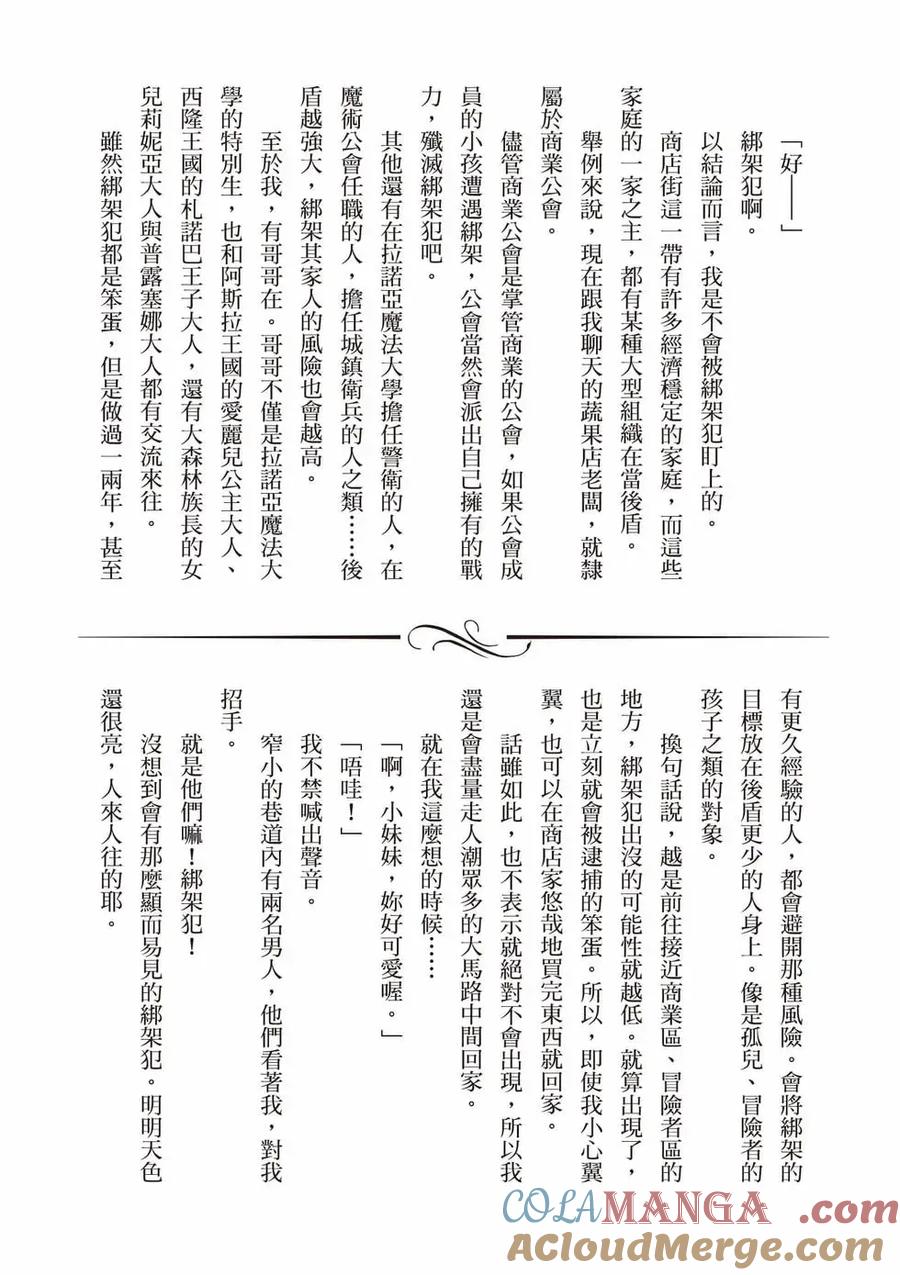 「好——」
綁架犯啊。
以結論而言，我是不會被綁架犯盯上的。
商店街這一帶有許多經濟穩定的家庭，而這些
家庭的一家之主，都有某種大型組織在當後盾。
舉例來說，現在跟我聊天的蔬果店老闆，就隸
屬於商業公會。
儘管商業公會是掌管商業的公會，如果公會成
員的小孩遭遇綁架，公會當然會派出自己擁有的戰
力，殲滅綁架犯吧。
其他還有在拉諾亞魔法大學擔任警衛的人，在
魔術公會任職的人，擔任城鎮衛兵的人之類……後
盾越強大，綁架其家人的風險也會越高。
至於我，有哥哥在。哥哥不僅是拉諾亞魔法大
學的特別生，也和阿斯拉王國的愛麗兒公主大人、
西隆王國的札諾巴王子大人，還有大森林族長的女
兒莉妮亞大人與普露塞娜大人都有交流來往。
雖然綁架犯都是笨蛋，但是做過一兩年，甚至
有更久經驗的人，都會避開那種風險。會將綁架的
目標放在後盾更少的人身上。像是孤兒、冒險者的
孩子之類的對象。
換句話說，越是前往接近商業區、冒險者區的
地方，綁架犯出沒的可能性就越低。就算出現了，
也是立刻就會被逮捕的笨蛋。所以，即使我小心翼
翼，也可以在商店家悠哉地買完東西就回家。
話雖如此，也不表示就絕對不會出現，所以我
還是會盡量走人潮眾多的大馬路中間回家。
就在我這麼想的時候……
「啊，小妹妹，妳好可愛喔。」
「唔哇！」
我不禁喊出聲音。
窄小的巷道內有兩名男人，他們看著我，對我
招手。
就是他們嘛！綁架犯！
沒想到會有那麼顯而易見的綁架犯。明明天色
還很亮，人來人往的耶。
COLAMANGA.com
ACloudMerge.com